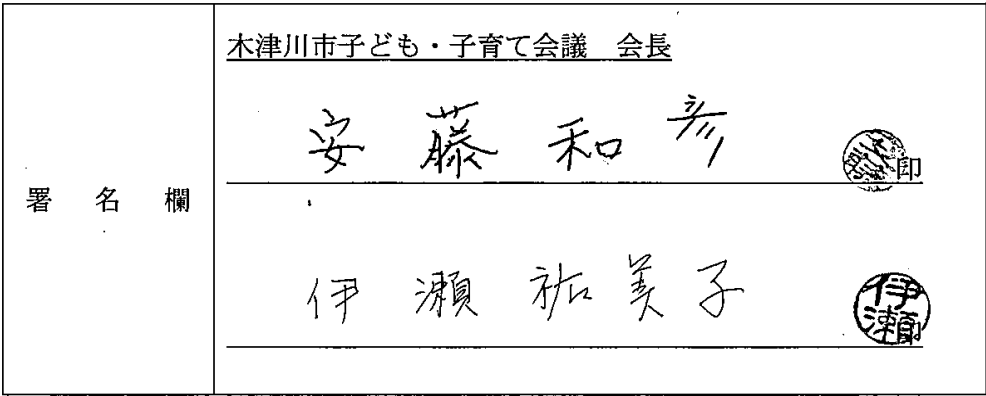 署名欄
木津川市子ども・子育て会議 会長
安藤和彦
印
伊瀬祐美子
伊瀬